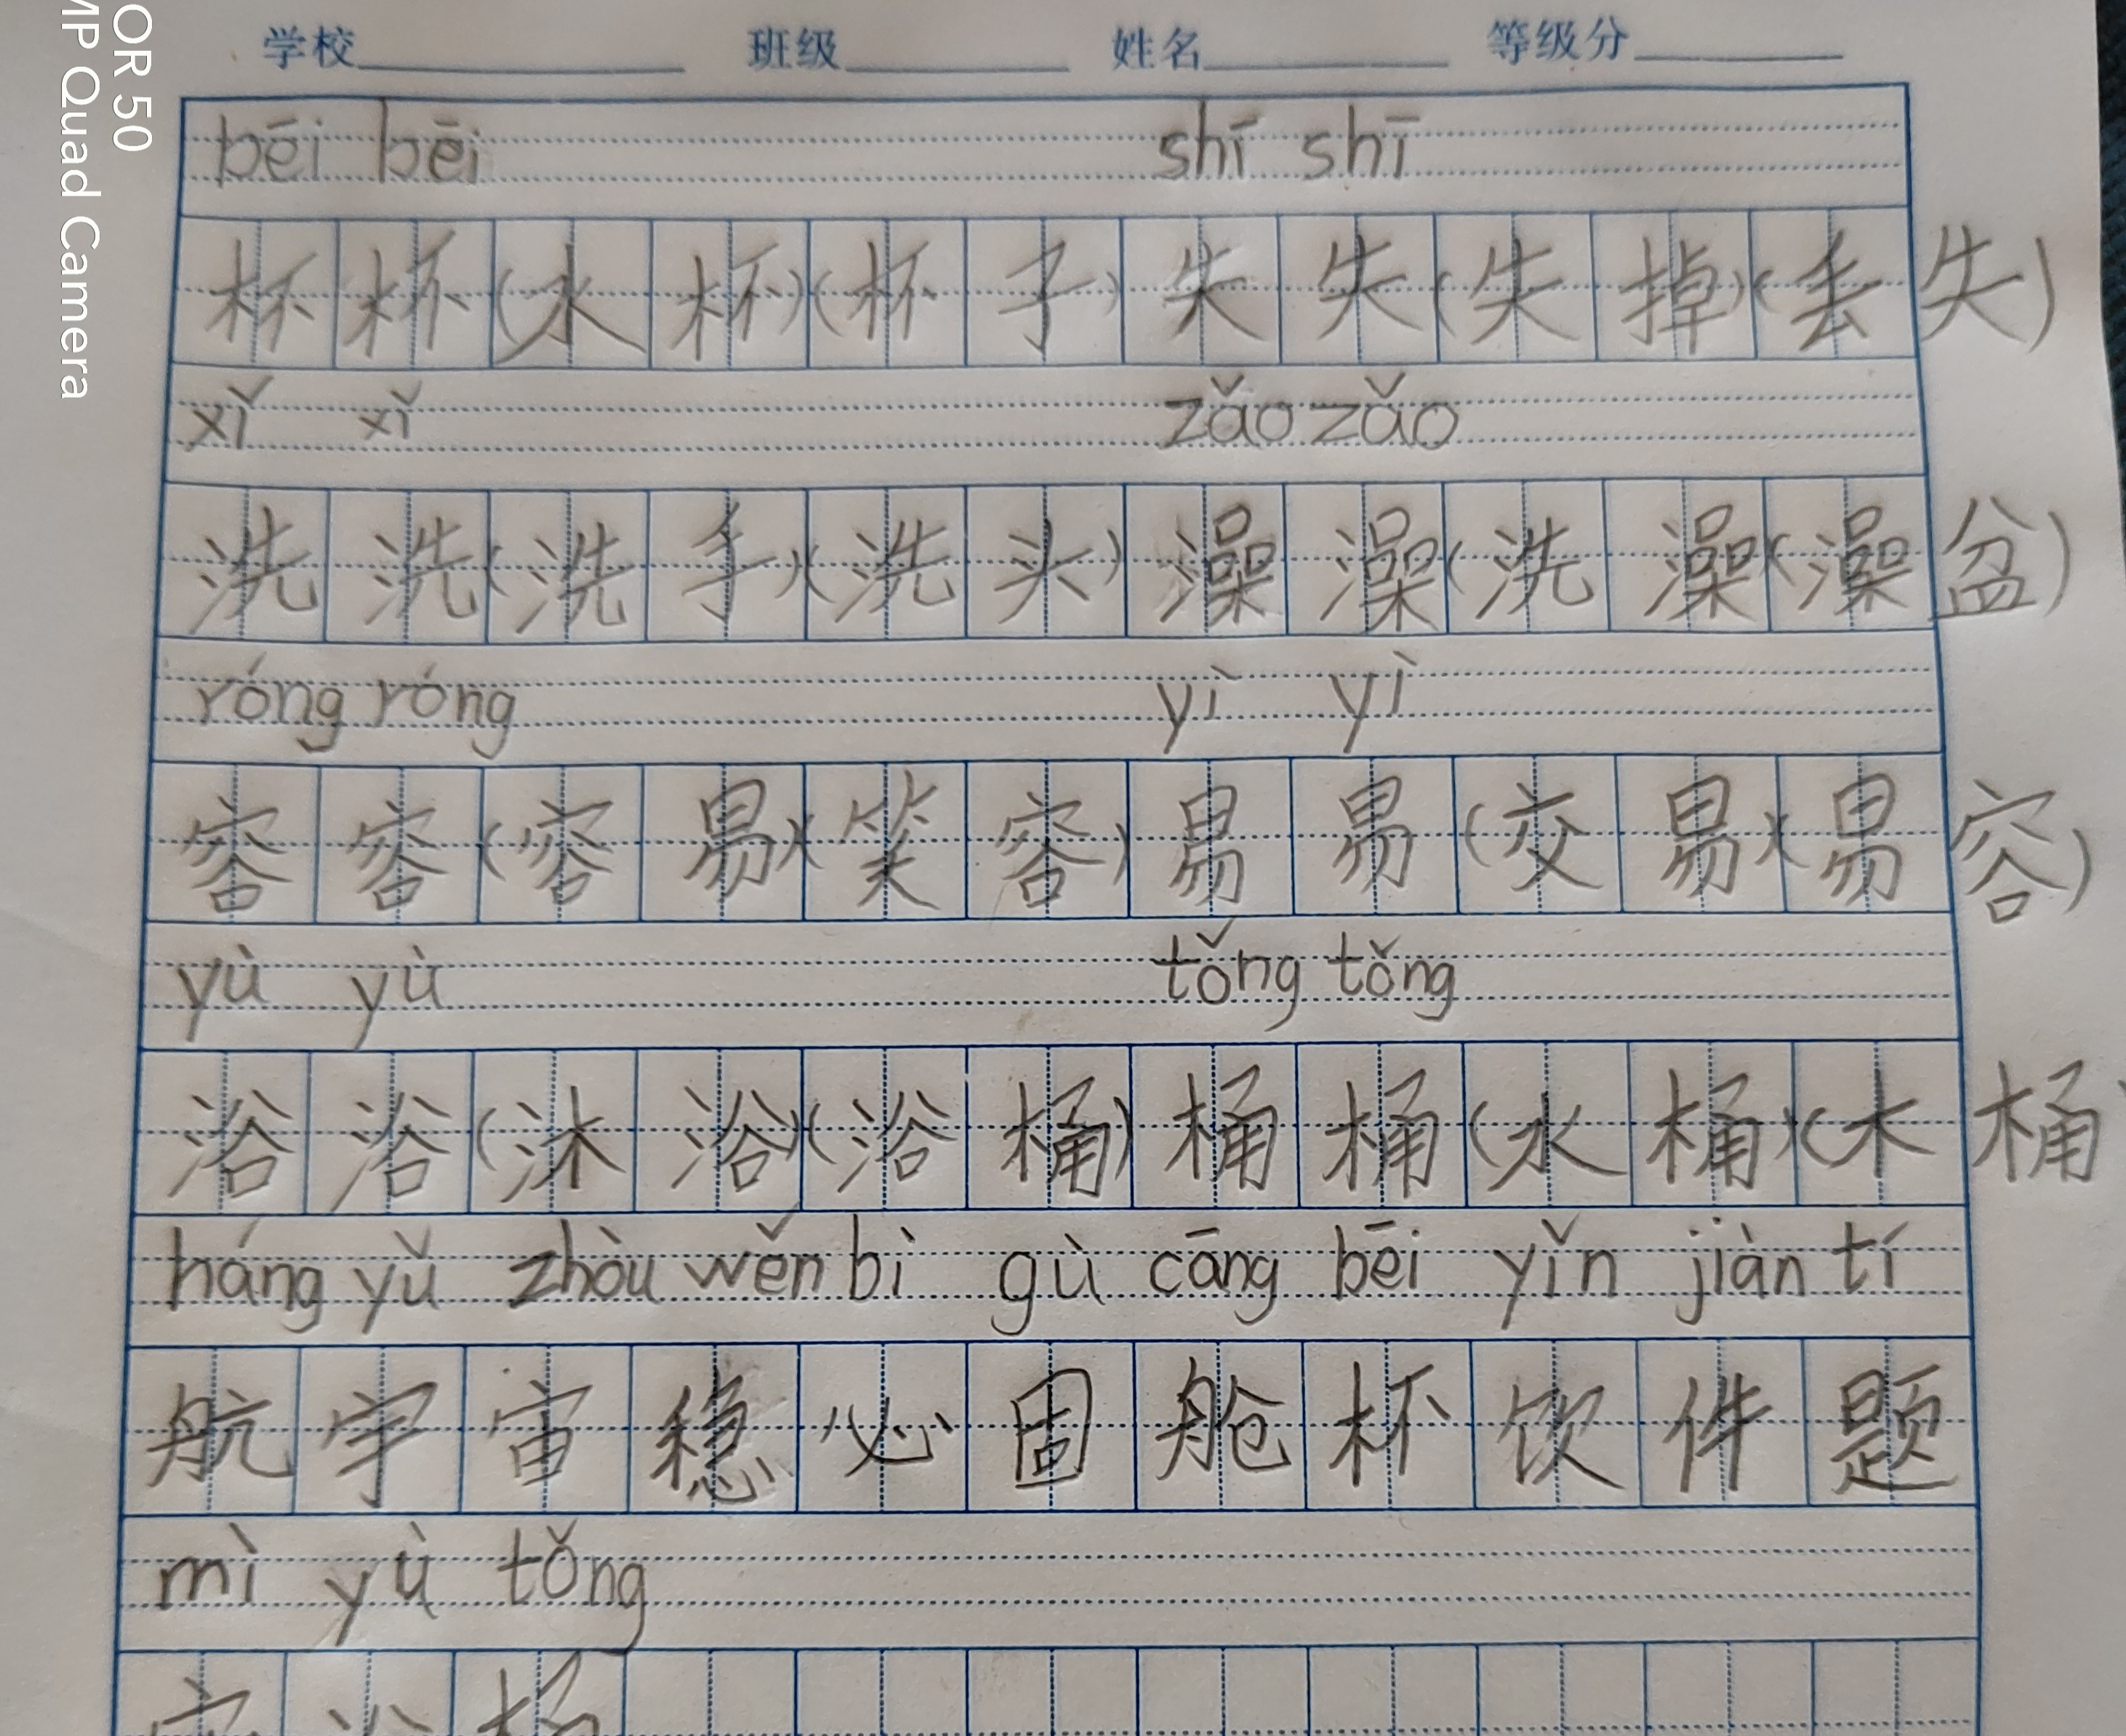 OR 50
MP Quad Camera
学校 班级 姓名 等级分
bēi bēi shī shī
杯杯(水杯)(杯子)失失(失掉)(丢失)
xǐ xǐ zǎo zǎo
洗洗(洗手)(洗头)澡澡(洗澡)(澡盆)
róng róng yì yì
容容(容易)(笑容)易易(交易)(易容)
yù yù tǒng tǒng
浴浴(沐浴)(浴桶)桶桶(水桶)(木桶
háng yǔ zhòu wěn bì gù cāng bēi yǐn jiàn tí
航宇宙稳必固舱杯饮件题
mì yù tǒng